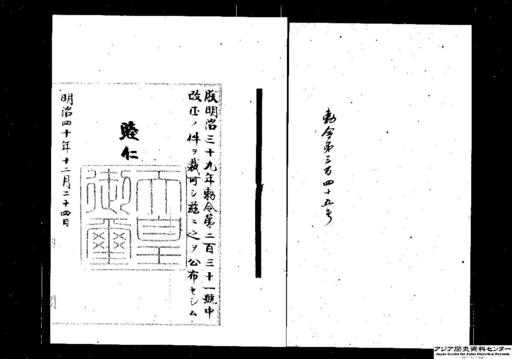 勅令第三百四十五号
朕明治三十九年勅令第二百三十一號中
改正ノ件ヲ裁可シ茲ニ之ヲ公布セシム
睦仁
天皇
御璽
明治四十年十二月二十四日
アジア歴史資料センター
Japan Center for Asian Historical Records